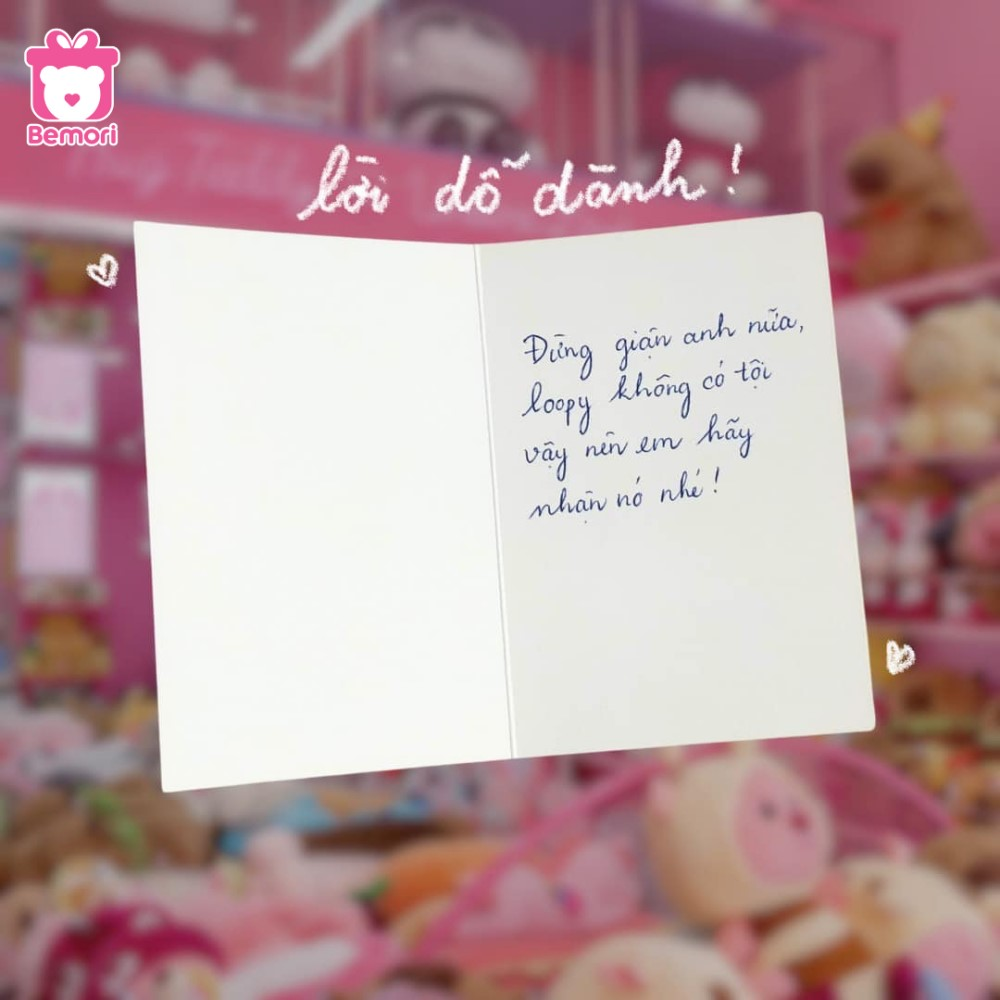 Bemori
lời dỗ dành!
Đừng giận anh nữa,
loopy không có tội
vậy nên em hãy
nhận nó nhé!